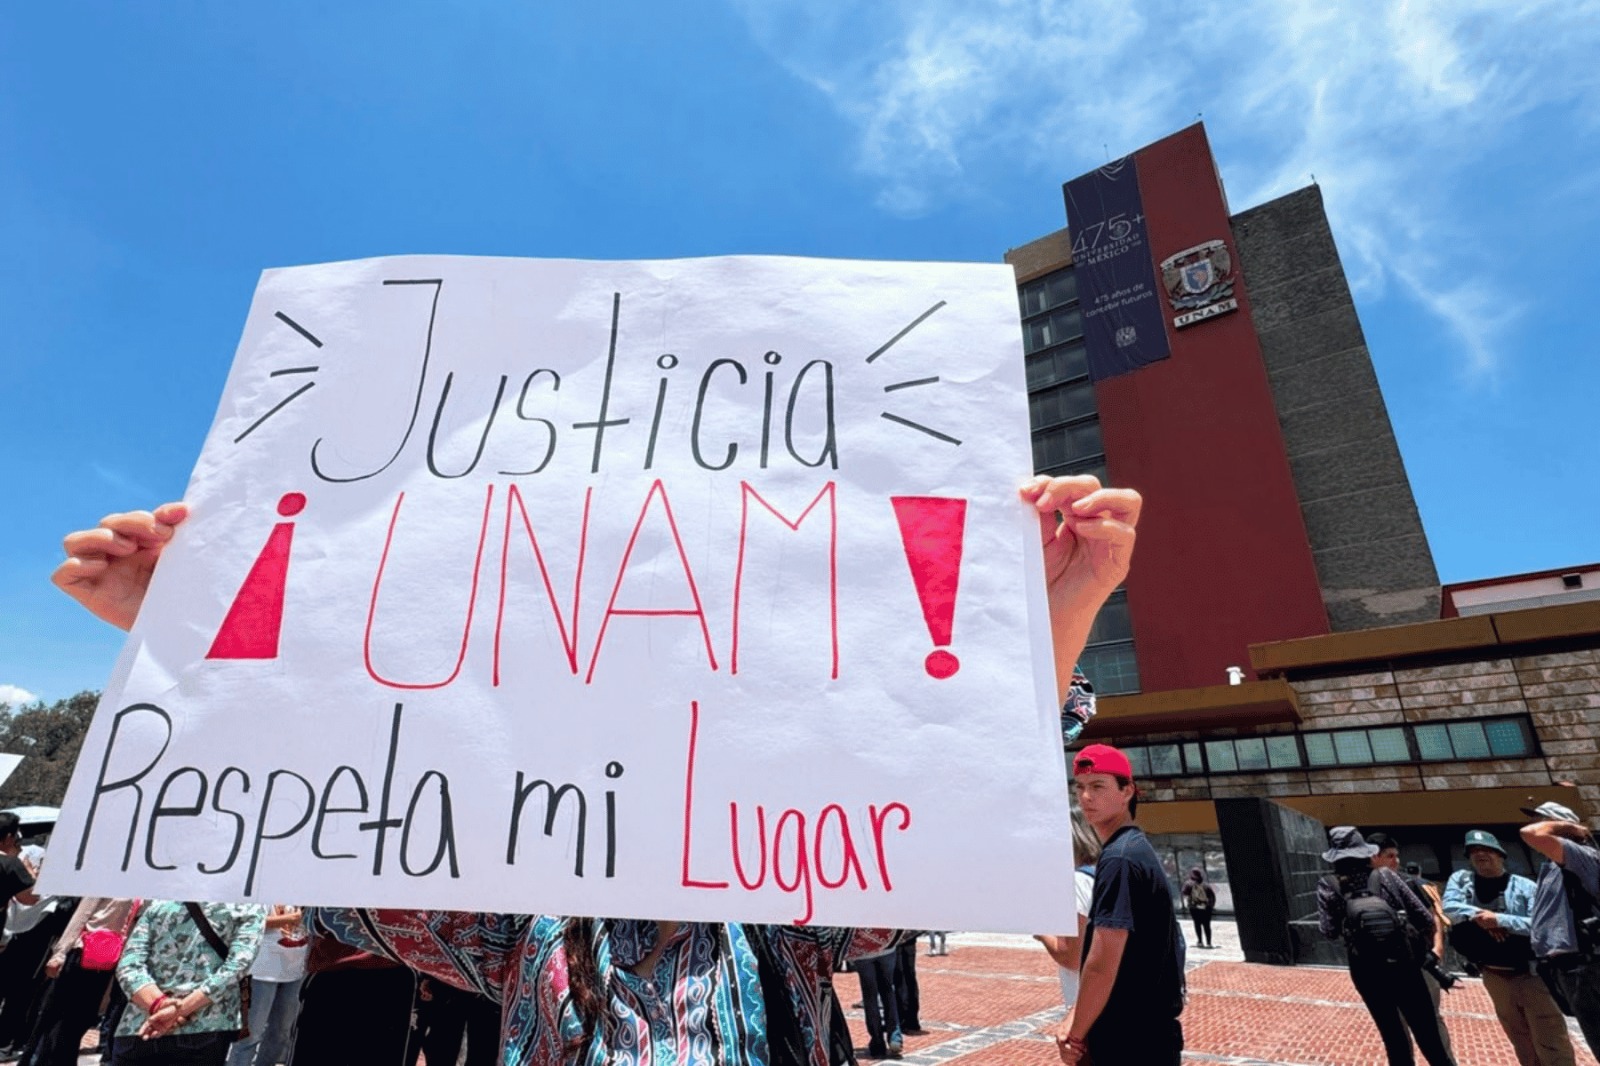 Justicia
¡UNAM!
Respeta mi Lugar
475+
UNIVERSIDAD
MÉXICO
475 años de
concebir futuros
UNAM